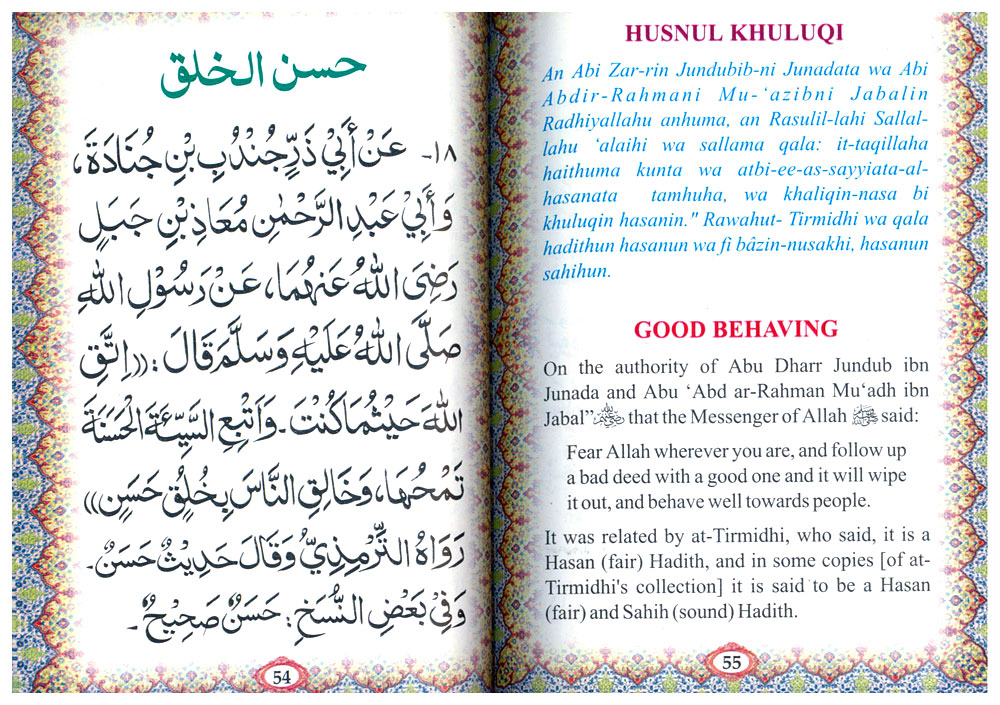 حسن الخلق
١٨- عَنْ أَبِيْ ذَرٍّ جُنْدُبِ بْنِ جُنَادَةَ،
وَأَبِيْ عَبْدِ الرَّحْمٰنِ مُعَاذِ بْنِ جَبَلٍ
رَضِيَ اللهُ عَنْهُمَا، عَنْ رَسُوْلِ اللهِ
صَلَّى اللهُ عَلَيْهِ وَسَلَّمَ قَالَ: ((اِتَّقِ
اللهَ حَيْثُمَا كُنْتَ۔ وَاَتْبِعِ السَّيِّئَةَ الْحَسَنَةَ
تَمْحُهَا، وَخَالِقِ النَّاسَ بِخُلُقٍ حَسَنٍ))
رَوَاهُ التِّرْمِذِيُّ وَقَالَ حَدِيْثٌ حَسَنٌ۔
وَفِيْ بَعْضِ النُّسَخِ: حَسَنٌ صَحِيْحٌ۔
54
HUSNUL KHULUQI
An Abi Zar-rin Jundubib-ni Junadata wa Abi
Abdir-Rahmani Mu-‘azibni Jabalin
Radhiyallahu anhuma, an Rasulil-lahi Sallal-
lahu ‘alaihi wa sallama qala: it-taqillaha
haithuma kunta wa atbi-ee-as-sayyiata-al-
hasanata tamhuha, wa khaliqin-nasa bi
khuluqin hasanin." Rawahut- Tirmidhi wa qala
hadithun hasanun wa fi bâzin-nusakhi, hasanun
sahihun.
GOOD BEHAVING
On the authority of Abu Dharr Jundub ibn
Junada and Abu ‘Abd ar-Rahman Mu‘adh ibn
Jabal” that the Messenger of Allah ﷺ said:
Fear Allah wherever you are, and follow up
a bad deed with a good one and it will wipe
it out, and behave well towards people.
It was related by at-Tirmidhi, who said, it is a
Hasan (fair) Hadith, and in some copies [of at-
Tirmidhi's collection] it is said to be a Hasan
(fair) and Sahih (sound) Hadith.
55